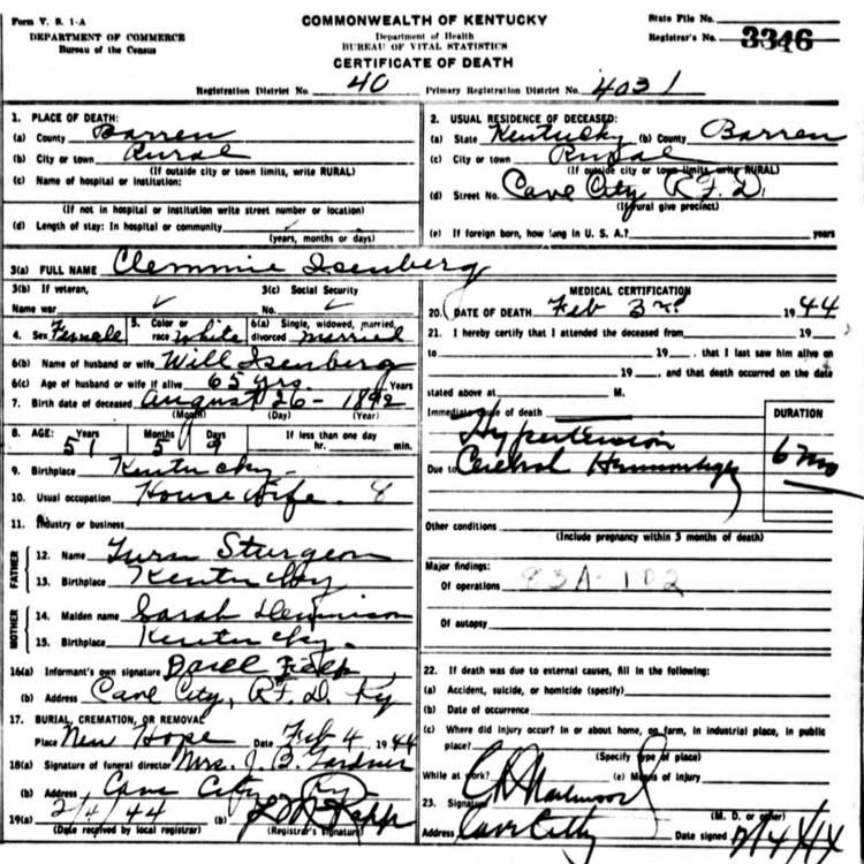 Form V. S. 1-A
DEPARTMENT OF COMMERCE
Bureau of the Census
COMMONWEALTH OF KENTUCKY
Department of Health
BUREAU OF VITAL STATISTICS
CERTIFICATE OF DEATH
State File No.
Registrar's No. 3346
Registration District No. 40 Primary Registration District No. 4031
1. PLACE OF DEATH:
(a) County Barren
(b) City or town Rural
(If outside city or town limits, write RURAL)
(c) Name of hospital or institution:
(If not in hospital or institution write street number or location)
(d) Length of stay: In hospital or community
(years, months or days)
2. USUAL RESIDENCE OF DECEASED:
(a) State Kentucky (b) County Barren
(c) City or town Rural
(If outside city or town limits, write RURAL)
(d) Street No. Cave City R.F.D.
(If rural give precinct)
(e) If foreign born, how long in U. S. A.? years
3(a) FULL NAME Clemmie Isenberg
3(b) If veteran, 3(c) Social Security
Name war No.
4. Sex Female 5. Color or race White 6(a) Single, widowed, married, divorced married
6(b) Name of husband or wife Will Isenberg
6(c) Age of husband or wife if alive 65 yrs. Years
7. Birth date of deceased August 26 - 1892
(Month) (Day) (Year)
8. AGE: Years Months Days If less than one day
51 5 9 hr. min.
9. Birthplace Kentucky
10. Usual occupation House wife 8
11. Industry or business
FATHER
12. Name Sturgeon
13. Birthplace Kentucky
MOTHER
14. Maiden name Sarah Dennison
15. Birthplace Kentucky.
16(a) Informant's own signature
(b) Address Cave City, R.F.D. Ky
17. BURIAL, CREMATION, OR REMOVAL
Place New Hope Date Feb 4, 1944
18(a) Signature of funeral director Mrs. J. B. Gardner
(b) Address Cave City Ky.
19(a) 2/4/44 (b)
(Date received by local registrar) (Registrar's signature)
MEDICAL CERTIFICATION
20. DATE OF DEATH Feb 3rd 1944
21. I hereby certify that I attended the deceased from 19
to 19 , that I last saw him alive on
19 , and that death occurred on the date
stated above at M.
Immediate cause of death DURATION
Hypertension
Due to Cerebral Hemmorhage 6 mo
Other conditions
(Include pregnancy within 3 months of death)
Major findings:
Of operations 83A-102
Of autopsy
22. If death was due to external causes, fill in the following:
(a) Accident, suicide, or homicide (specify)
(b) Date of occurrence
(c) Where did injury occur? In or about home, on farm, in industrial place, in public
place?
(Specify type of place)
While at work? (e) Means of injury
23. Signature
(M. D. or other)
Address Cave City Date signed